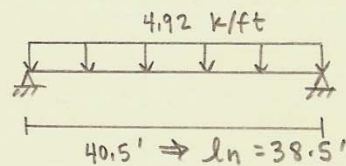 4.92 k/ft
40.5' ⇒ ln = 38.5'